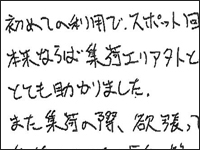 初めての利用で、スポット回
本来ならば集荷エリアタトと
とても助かりました。
また集荷の際、欲張って